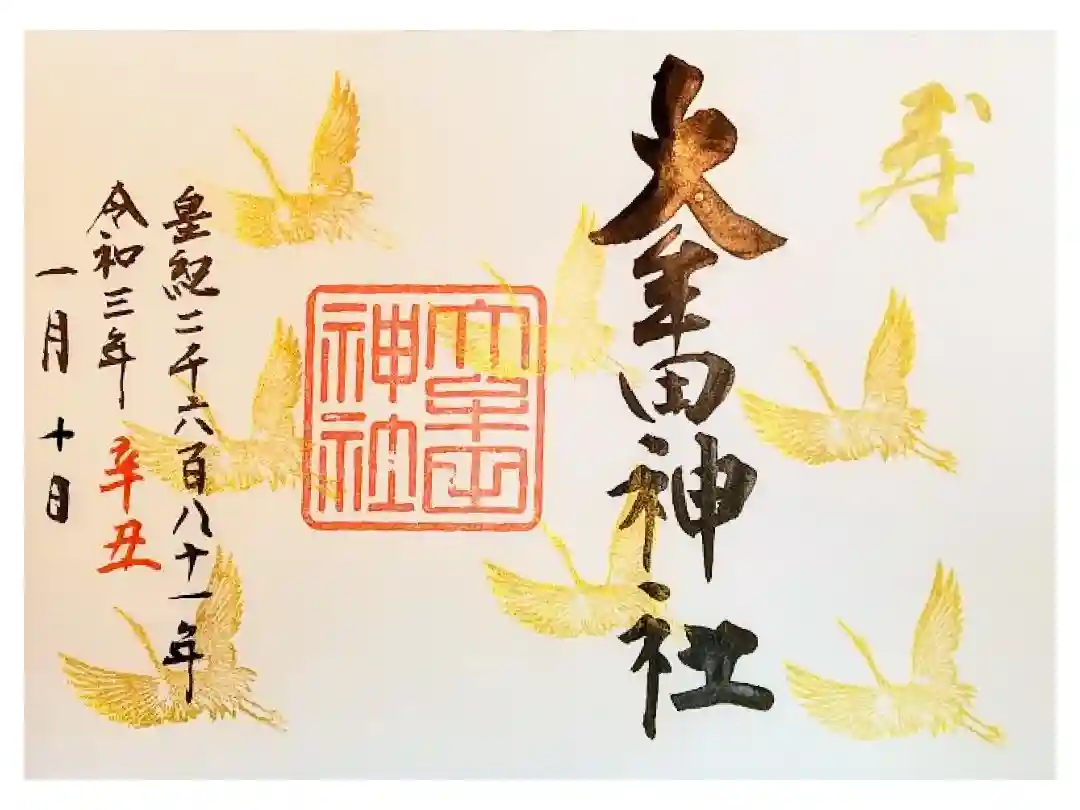 寿
大牟田神社
大牟田
神社
皇紀二千六百八十一年
令和三年 辛丑
一月十日